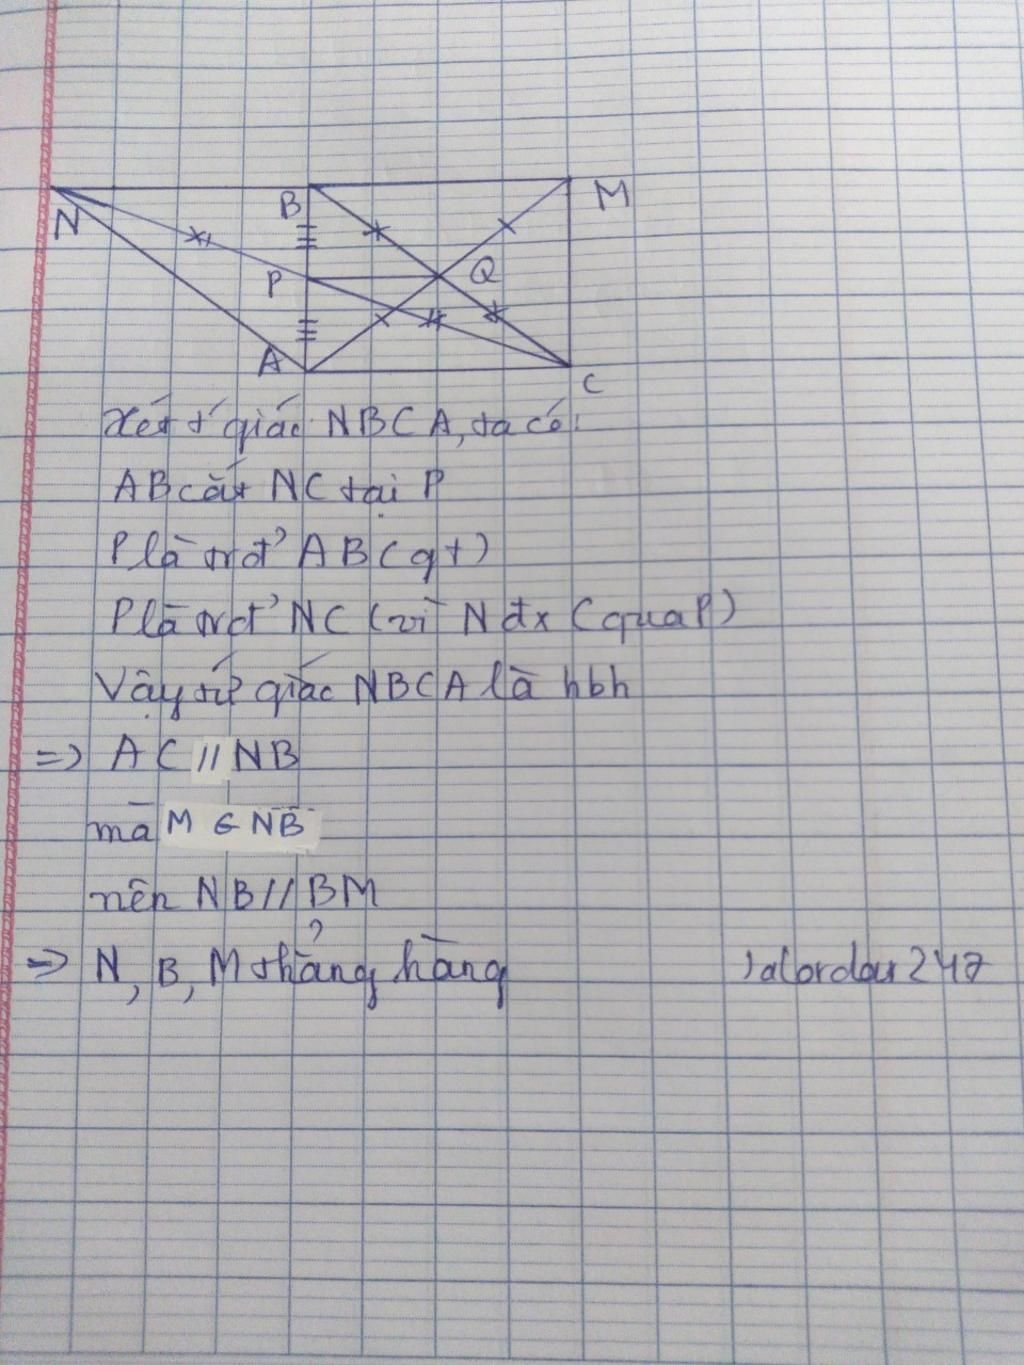 N
B
M
P
Q
A
C
Xét tứ giác NBCA, ta có:
AB cắt NC tại P
P là trđ' AB (gt)
P là trđ' NC (vì N đx C qua P)
Vậy tứ giác NBCA là hbh
=> AC // NB
mà M ∈ NB
nên NB // BM
=> N, B, M thẳng hàng